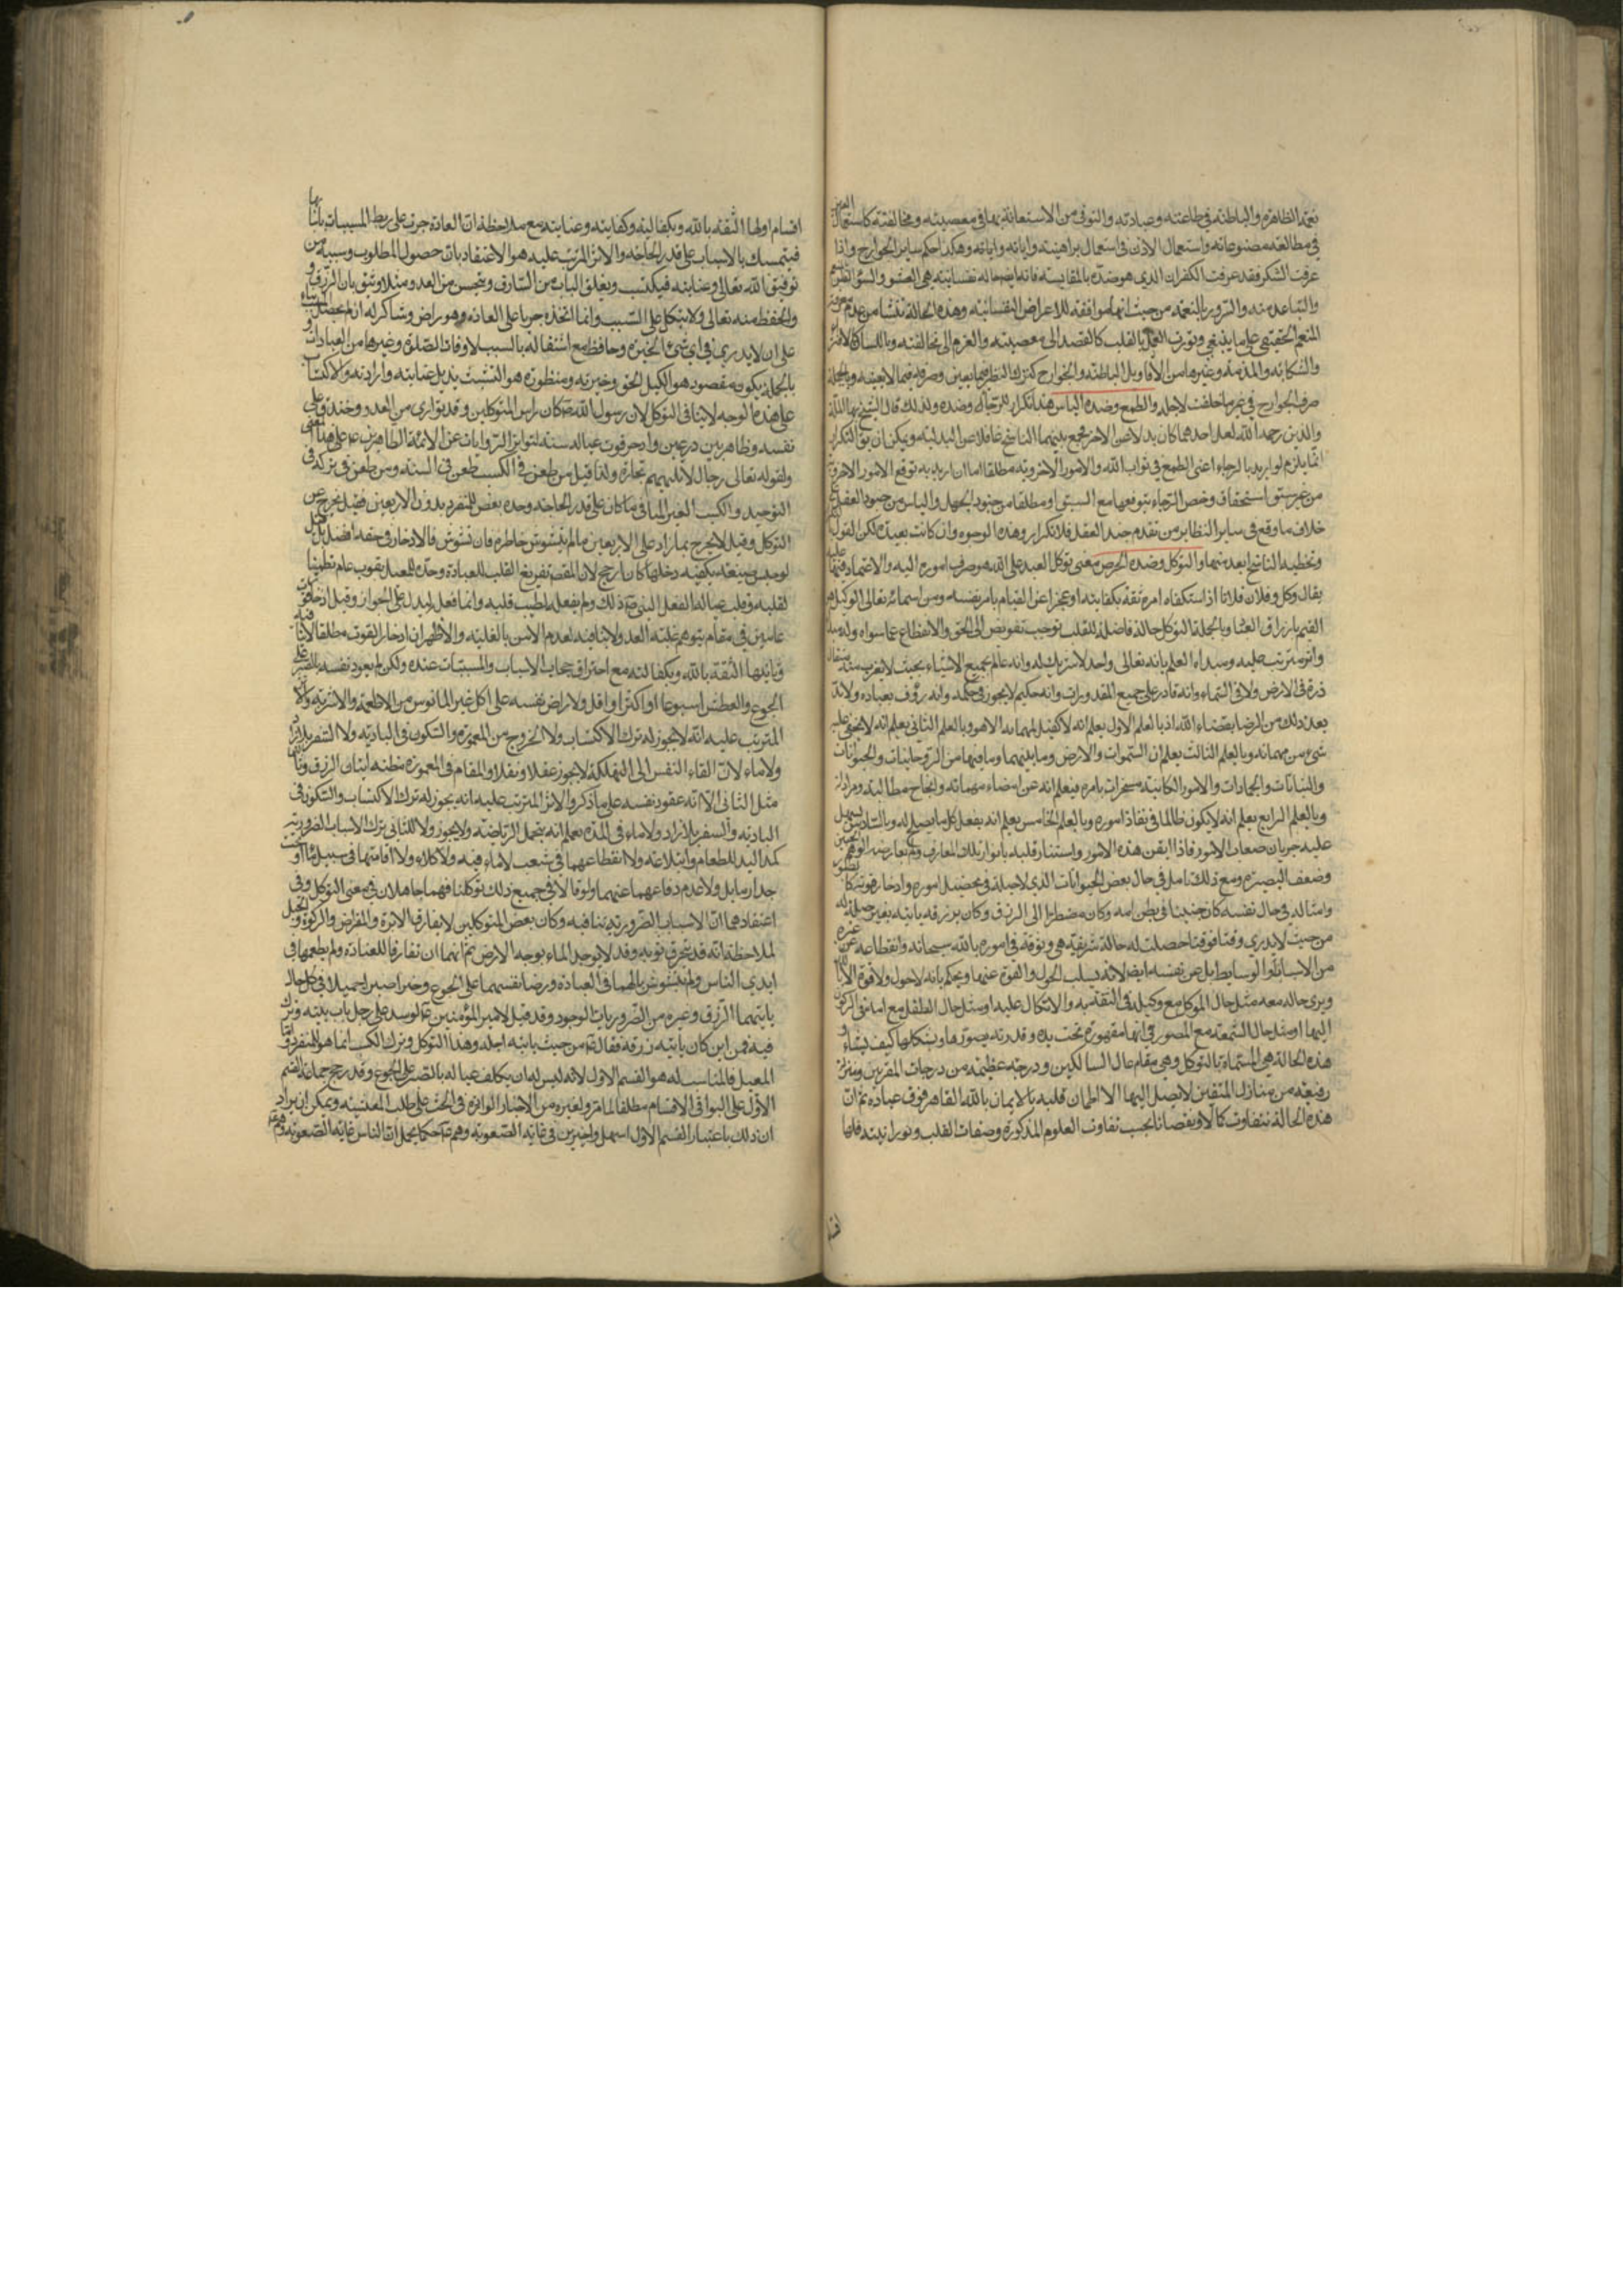 نعمه الظاهرة والباطنة في طاعته وعبادته والتوقي من الاستعانة بها في معصيته ومخالفته كاستعمال العين
في مطالعة مصنوعاته واستعمال الاذن في استعمال براهينه واياته وهكذا حكم ساير الجوارح واذا
عرفت الشكر فقد عرفت الكفران الذي هو ضده بالمقايسة فانه ايضا حالة نفسانية هي العتو
والتباعد منه والسرور بالنعمة من حيث انها موافقة للاغراض النفسانية وهذه الحالة تنشأ من عدم معرفة
المنعم الحقيقي على ما ينبغي وتورث العمل بالقلب كالقصد الى معصيته والعزم الى مخالفته وباللسان
والشكاية والمذمة وغيرها من الاقاويل الباطلة والجوارح كترك النظر فيما يعين وصرفه فيما لا يعينه وبالجملة
صرف الجوارح في غير ما خلقت لاجله والطمع وضده الياس هذا تكرار للرجاء وضده ولذلك قال الشيخ بهاء الملة
والدين رحمه الله لعل احدهما كان بدلا عن الاخر فجمع بينهما الناسخ غافلا عن البدلية ويمكن ان يق التكرار
انما يلزم لو اريد بالرجاء اعني الطمع في ثواب الله والامور الاخروية مطلقا اما ان اريد به توقع الامور الاخروية
من غير سبق استحقاق وخص الرجاء بتوقعها مع السبق او مطلقا من جنود الجهل والياس من جنود العقل
خلاف ما وقع في ساير النظاير من تقدم جند العقل فلا تكرار وهذه الوجوه وان كانت بعيدة لكن القول
وتخطية الناسخ ابعد منها والتوكل وضده الحرص معنى توكل العبد على الله هو صرف اموره اليه والاعتماد فيها عليه
يقال وكل فلان فلانا اذا استكفاه امره ثقة بكفايته او عجزا عن القيام بامر نفسه ومن اسمائه تعالى الوكيل
القيم بارزاق العباد وبالجملة التوكل حالة فاضلة للقلب توجب تفويض الى الحق والانقطاع عما سواه وله
واثر مترتب عليه ومبداه العلم بانه تعالى واحد لا شريك له وانه عالم بجميع الاشياء بحيث لا يعزب عنه مثقال
ذرة في الارض ولا في السماء وانه قادر على جميع المقدورات وانه حكيم لا يجوز في حكمه وانه رؤف بعباده ولابد
بعد ذلك من الرضا بقضاء الله اذ بالعلم الاول يعلم انه لا كفيل لمهماته الا هو وبالعلم الثاني يعلم انه لا يخفى عليه
شيء من مهماته وبالعلم الثالث يعلم ان السموات والارض وما بينهما وما فيهما من الروحانيات والحيوانات
والنباتات والجمادات والامور الكاينة مسخرات بامره فيعلم انه عن امضاء مهماته وانجاح مطالبته
وبالعلم الرابع يعلم انه لا يكون ظالما في نفاذ اموره وبالعلم الخامس يعلم انه يفعل كل ما يصلح له وبالسادس يسهل
عليه جريان صعاب الامور فاذا ايقن هذه الامور واستنار قلبه بانوار تلك المعارف ولم يعارضه الوهم
وضعف البصيرة ومع ذلك تامل في حال بعض الحيوانات الذي لا حيلة في تحصيل اموره وادخار قوته كالطيور
وامثاله في حال نفسه كان جنينا في بطن امه وكان مضطرا الى الرزق وكان رزقه ياتيه بغير حيلة له
من حيث لا يدري وقتا فوقتا حصلت له حالة شريفة هي وثوقه في اموره بالله سبحانه وانقطاعه عن غيره
من الاسباب والوسايط بل عن نفسه ايضا لانه يسلب الحول والقوة عنها ويحكم بانه لا حول ولا قوة الا بالله
ويرى حاله معه مثل حال الموكل مع وكيله في الثقة به والاتكال عليه او مثل حال الطفل مع امه في الركون
اليها او مثل حال الشمعة مع المصور في انها مقهورة تحت يده وقدرته يصورها ويشكلها كيف يشاء و
هذه الحالة هي المسماة بالتوكل وهي مقام عال السالكين ودرجة عظيمة من درجات المقربين ومنزلة
رفيعة من منازل المتقين لا يصل اليها الا من اطمان قلبه بالايمان بالله القاهر فوق عباده ثم ان
هذه الحالة تتفاوت كمالا ونقصانا بحسب تفاوت العلوم المذكورة وصفات القلب ونورانيته فلها
اقسام اولها الثقة بالله وبكفالته وكفايته وعنايته مع ملاحظة ان العادة جرت على ربط المسببات باسبابها
فيتمسك بالاسباب على قدر الحاجة والاثر المترتب عليه هو الاعتقاد بان حصول المطلوب وسببه من
توفيق الله تعالى وعنايته فيكتسب ويغلق الباب من السارق ويتحصن من العدو مثلا ويثق بان الرزق و
والحفظ منه تعالى ولا يتكل على السبب وانما اتخذه جريا على العادة وهو راض وشاكر له ان لم يحصل
على ان لا يدري في اي شيء الخيرة وحافظ مع اشتغاله بالسبب لاوقات الصلوة وغيرها من العبادات و
بالجملة يكون مقصوده هو الكيل الحق وخيرته ومنظوره هو التشبث بذيل عنايته وارادته والاكتساب
على هذه الوجه لا ينافي التوكل لان رسول الله كان راس المتوكلين وقد توارى من العدو وخندق على
نفسه وظاهر بين درعين وادخر قوت عياله سنة لتواتر الروايات عن الائمة الطاهرين على هذا المعنى
ولقوله تعالى رجال لا تلهيهم تجارة ولذا قيل من طعن في الكسب طعن في السنة ومن طعن في تركه
التوحيد والكسب الغير المنافي ما كان على قدر الحاجة وحده بعض للمتفرد بدون الاربعين فقيل يخرج عن
التوكل وقيل لا يخرج بما زاد على الاربعين ما لم يتشوش خاطره فان تشوش فالادخار في حقه افضل
لو حبس ضيعته يكفيه دخلها كان ارجح لان المقصد تفريغ القلب للعبادة وحده للمعيل بقوت عام تطمينا
لقلبه وقلب عياله لفعل النبي ذلك ولم يفعله لطيب قلبه وانما فعل ليدل على الجواز وقيل ادخار قوت
عامين في مقام يتوهم غلبة العدو لا ينافيه لعدم الامن بالغلبة والاظهر ان ادخار القوت مطلقا لا ينافيه
وثانيها الثقة بالله وبكفالته مع احتراق حجاب الاسباب والمسببات عنده ولكن لم يعود نفسه بالصبر على
الجوع والعطش اسبوعا او اكثر او اقل ولا راض نفسه على اكل غير المانوس من الاطعمة والاشربة والاثر
المترتب عليه انه لا يجوز له ترك الاكتساب ولا الخروج من المعمورة والسكون في البادية ولا السفر بلا زاد
ولا ماء لان القاء النفس الى التهلكة لا يجوز عقلا ونقلا والمقام في المعمورة مظنة اتيان الرزق وثالثها
مثل الثاني الا انه عقود نفسه على ما ذكر والاثر المترتب عليه انه يجوز له ترك الاكتساب والسكون في
البادية والسفر بلا زاد ولا ماء في المدة يعلم انه يتحمل الرياضة ولا يجوز ولا للثاني ترك الاسباب الضرورية
كمد اليد للطعام وابتلاعه ولا انقطاعهما في شعب لا ماء فيه ولا كلاء ولا اقامتهما في سبيل ماء او تحت
جدار مايل ولا عدم دفاعهما عنهما ولو قالا في جميع ذلك توكلنا فهما جاهلان في معنى التوكل وفي
اعتقادهما ان الاسباب الضرورية تنافيه وكان بعض المتوكلين لا يفارق الابرة والمقراض والركوة والحبل
لملاحظة انه قد يتحرق ثوبه وقد لا يوجد الماء بوجه الارض ثم انهما ان تفارقا للعبادة ولم يطمعا في
ايدي الناس ولم يتشوش بالهما في العبادة ورضا نفسهما على الجوع وخيرا صبرا جميلا في كل حال
ياتيهما الرزق وغيره من الضروريات لوجود وقد قيل لامير المؤمنين لو سد على رجل باب بيته وترك
فيه فمن اين كان ياتيه رزقه فقال من حيث ياتيه اجله وهذا التوكل وترك الكسب انما هو للمتفرد واما
المعيل فالمناسب له هو القسم الاول لانه ليس له ان يكلف عياله بالصبر على الجوع وقد رجح جماعة القسم
الاول على البواقي الاقسام مطلقا لما مر ولغيره من الاخبار الواردة في الحث على طلب المعيشة ويمكن ان يراد
ان ذلك باعتبار القسم الاول اسهل والاخيرين في غاية الصعوبة